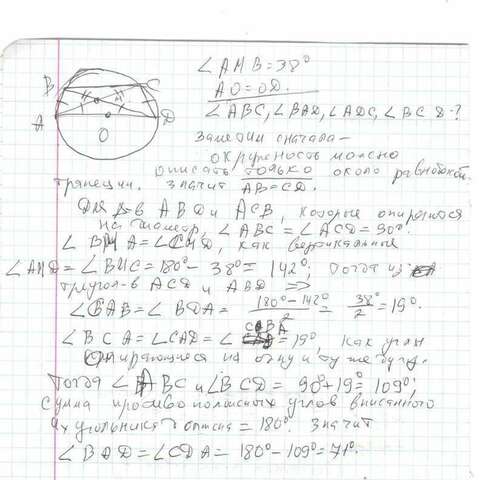 ∠AMB = 38°
AO = OD.
∠ABC, ∠BAD, ∠ADC, ∠BCD - ?
B C
M
A D
O
Заметим сначала -
окружность можно
описать только около равнобокой
трапеции. Значит AB = CD.
Для ABD и ACD, которые опираются
на диаметр, ∠ABC = ∠ACD = 90°.
∠BMA = ∠CMD, как вертикальные
∠AMD = ∠BMC = 180° - 38° = 142°; тогда из
треугол-в ACD и ABD =>
∠CAB = ∠BDA = 180° - 142° / 2 = 38° / 2 = 19°.
∠BCA = ∠CAD = ∠ = 19°, как углы
опирающиеся на одну и ту же дугу.
Тогда ∠ABC и ∠BCD = 90° + 19° = 109°;
Сумма противоположных углов вписанного
= 180°. Значит
∠BAD = ∠CDA = 180° - 109° = 71°.